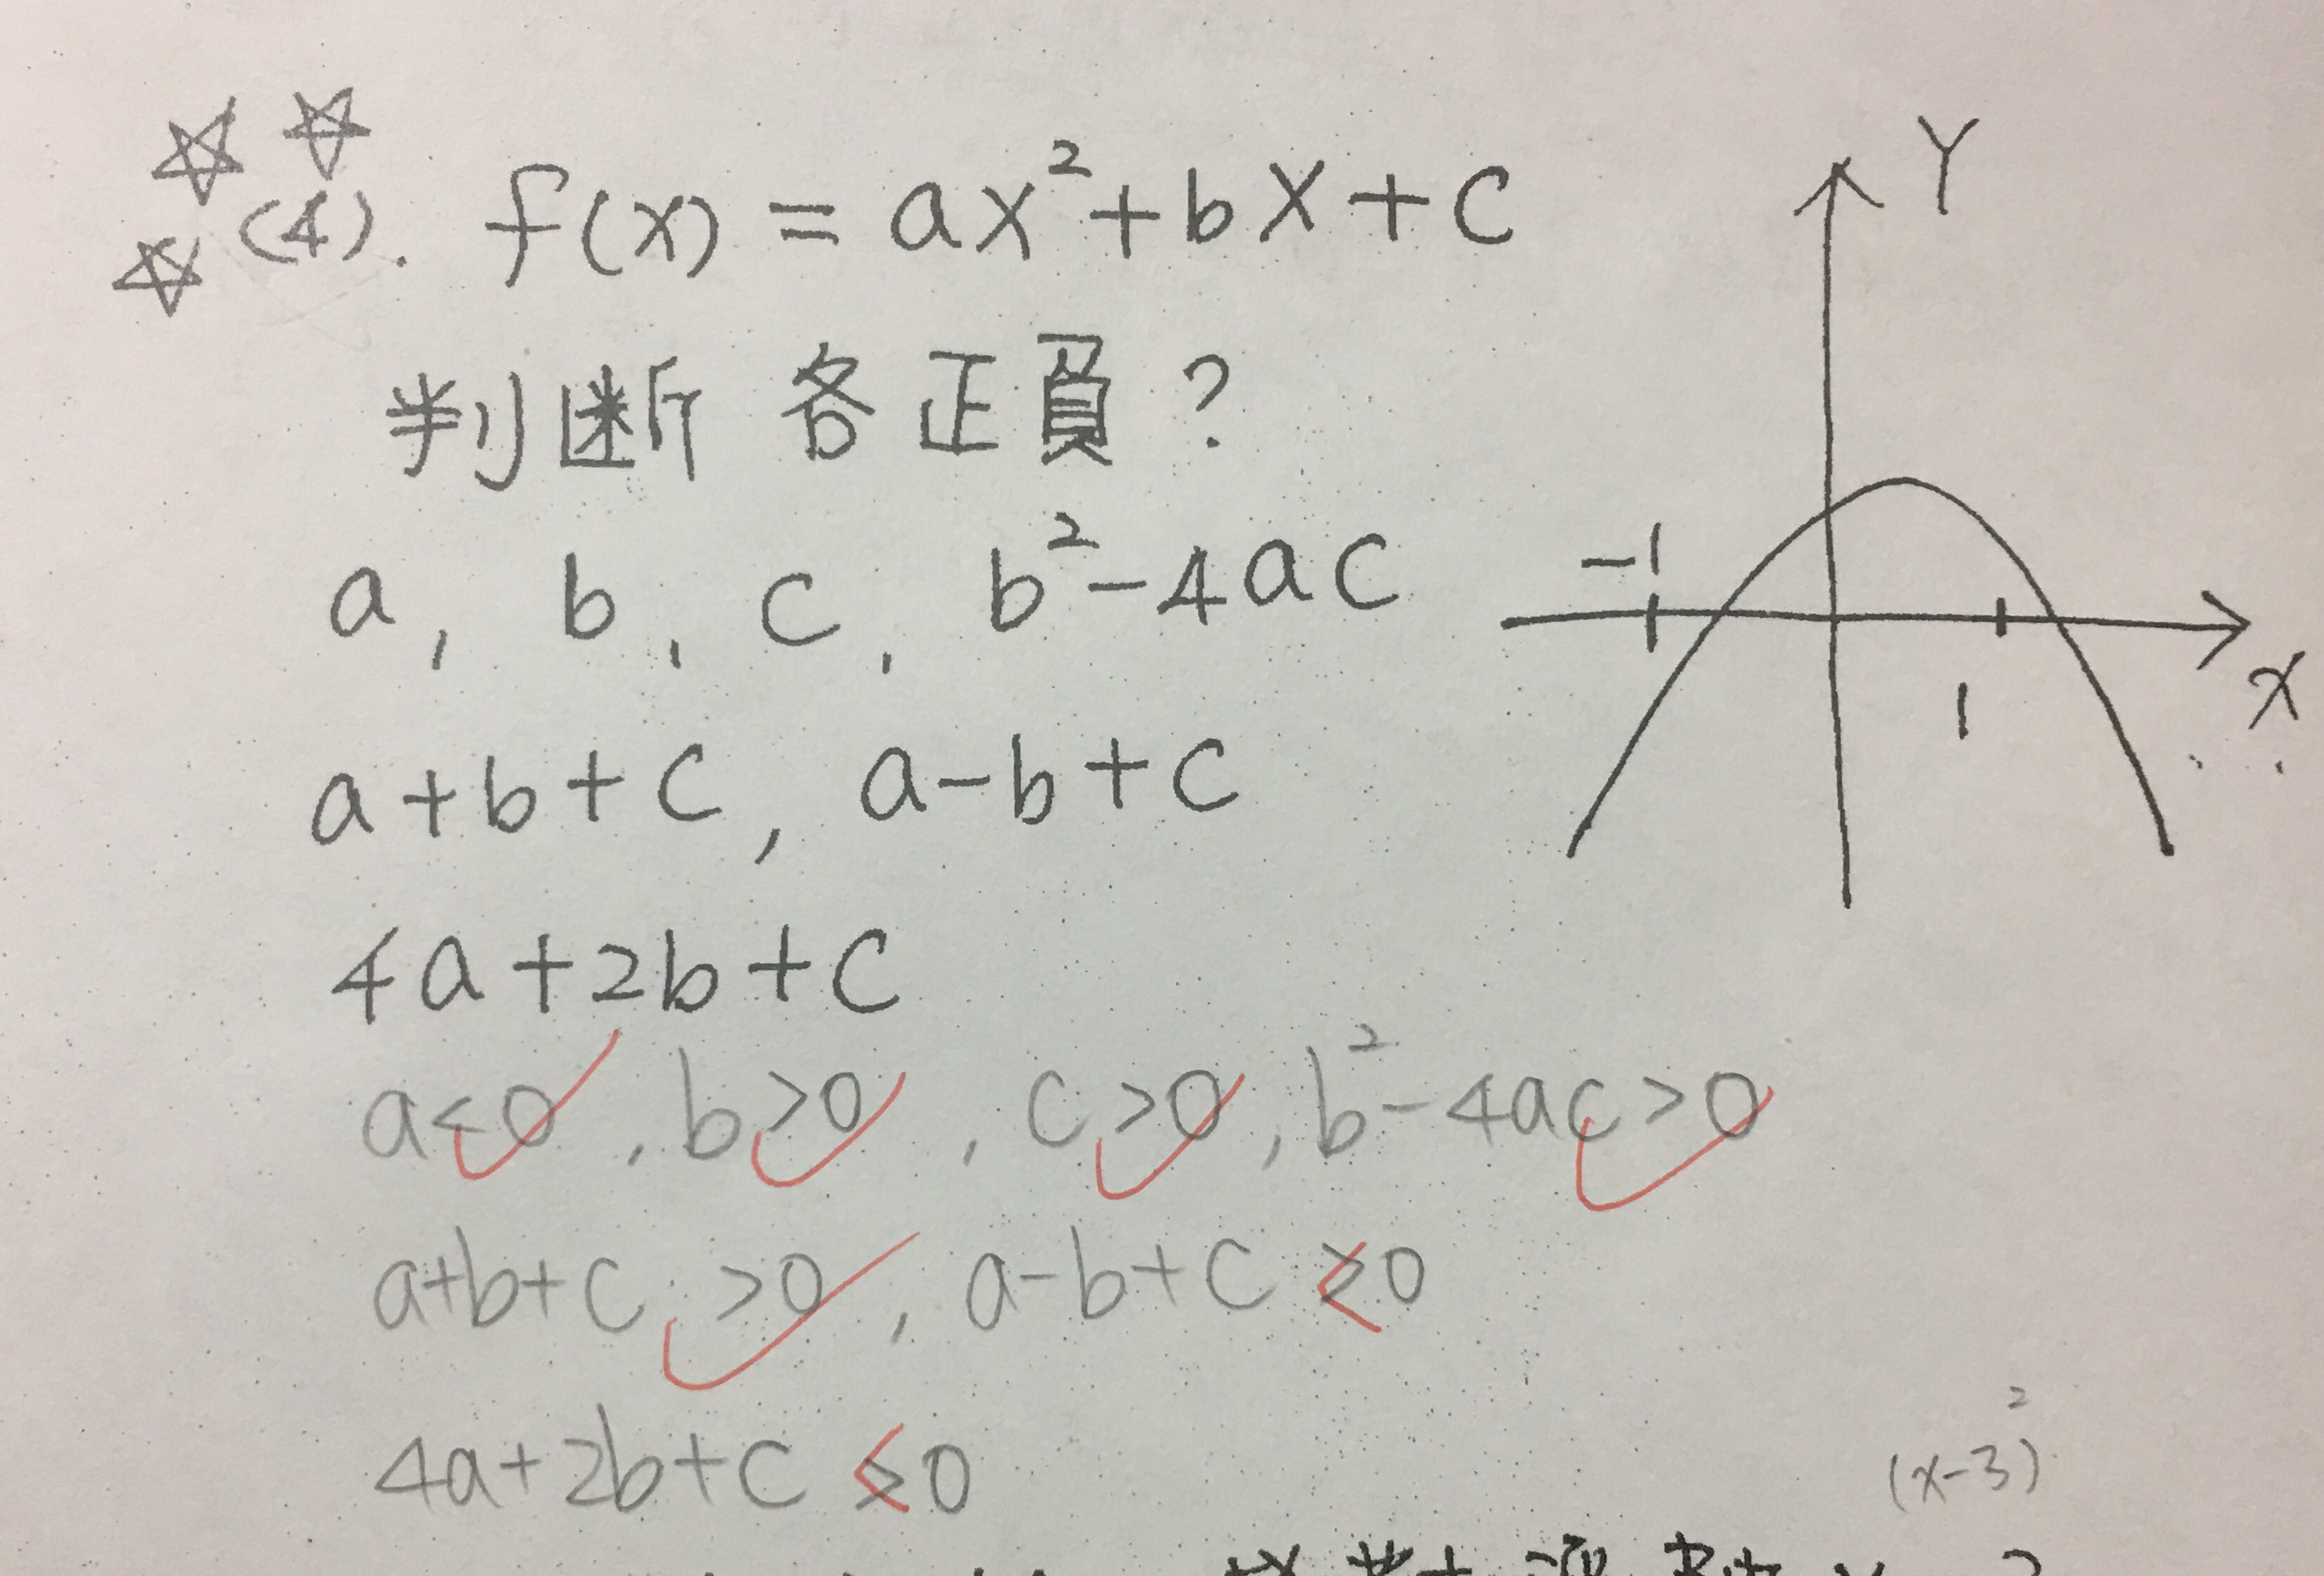 (4). f(x) = ax²+bx+c
判断 各正負?
a, b, c, b²-4ac
a+b+c, a-b+c
4a+2b+c
a<0, b>0, c>0, b²-4ac>0
a+b+c>0, a-b+c<0
4a+2b+c<0
Y
-1
1
X
(x-3)²